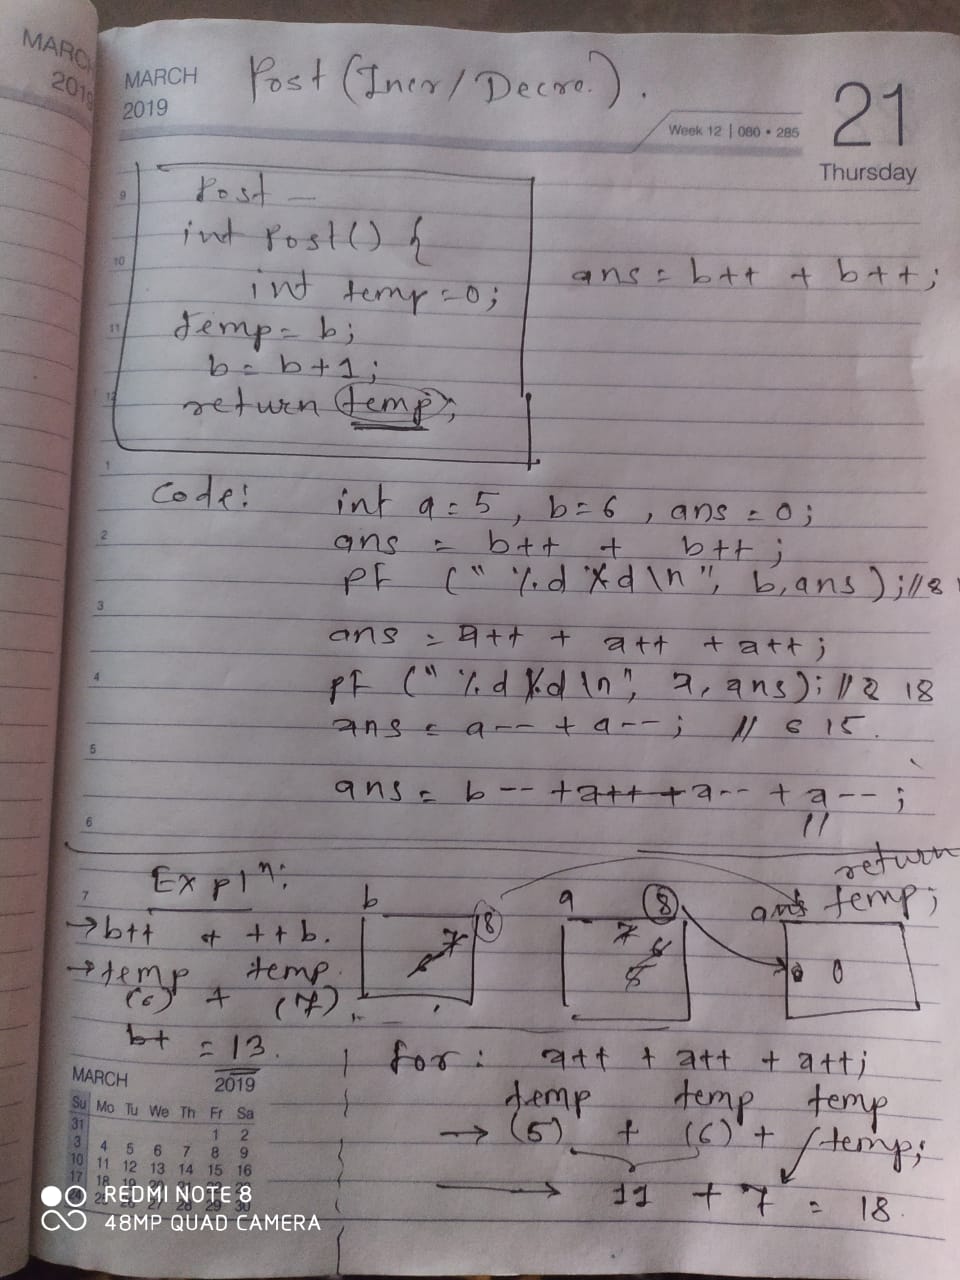 MARCH
2019
MARCH
2019
Post (Incr/Decre.).
Week 12 | 080 • 285
21
Thursday
9
Post —
int Post() {
10
int temp=0;
ans = b++ + b++;
11
temp= b;
b= b+1;
12
return temp;
1
Code:
int a=5, b=6, ans=0;
2
ans = b++ + b++;
PF ("%d %d\n", b,ans);//8
3
ans = a++ + a++ + a++;
4
PF ("%d %d\n", a, ans); // 18
ans = a-- + a--; // 6 15.
5
ans = b-- +a++ +a-- + a--;
//
6
Expln:
return
temp;
7
b
8
7
6
a
8
7
6
5
ans
0
0
→b++ + ++b.
→temp temp.
(6) + (7)
b+ = 13.
for: a++ + a++ + a++;
temp temp temp
→ (5) + (6) + temp;
→ 11 + 7 = 18.
MARCH 2019
Su Mo Tu We Th Fr Sa
31 1 2
3 4 5 6 7 8 9
10 11 12 13 14 15 16
17 18
REDMI NOTE 8
48MP QUAD CAMERA